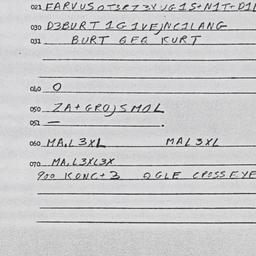 021 FARVUS
030 D3BURT 1G1VEJNC1LANG
031 BURT GFG KURT
040 O
050 ZA+GROJSMOL
051 —
060 MA,L3XL MAL3XL
070 MA,L3XL3X
900 KONC+3 OGLE CROSSEYE